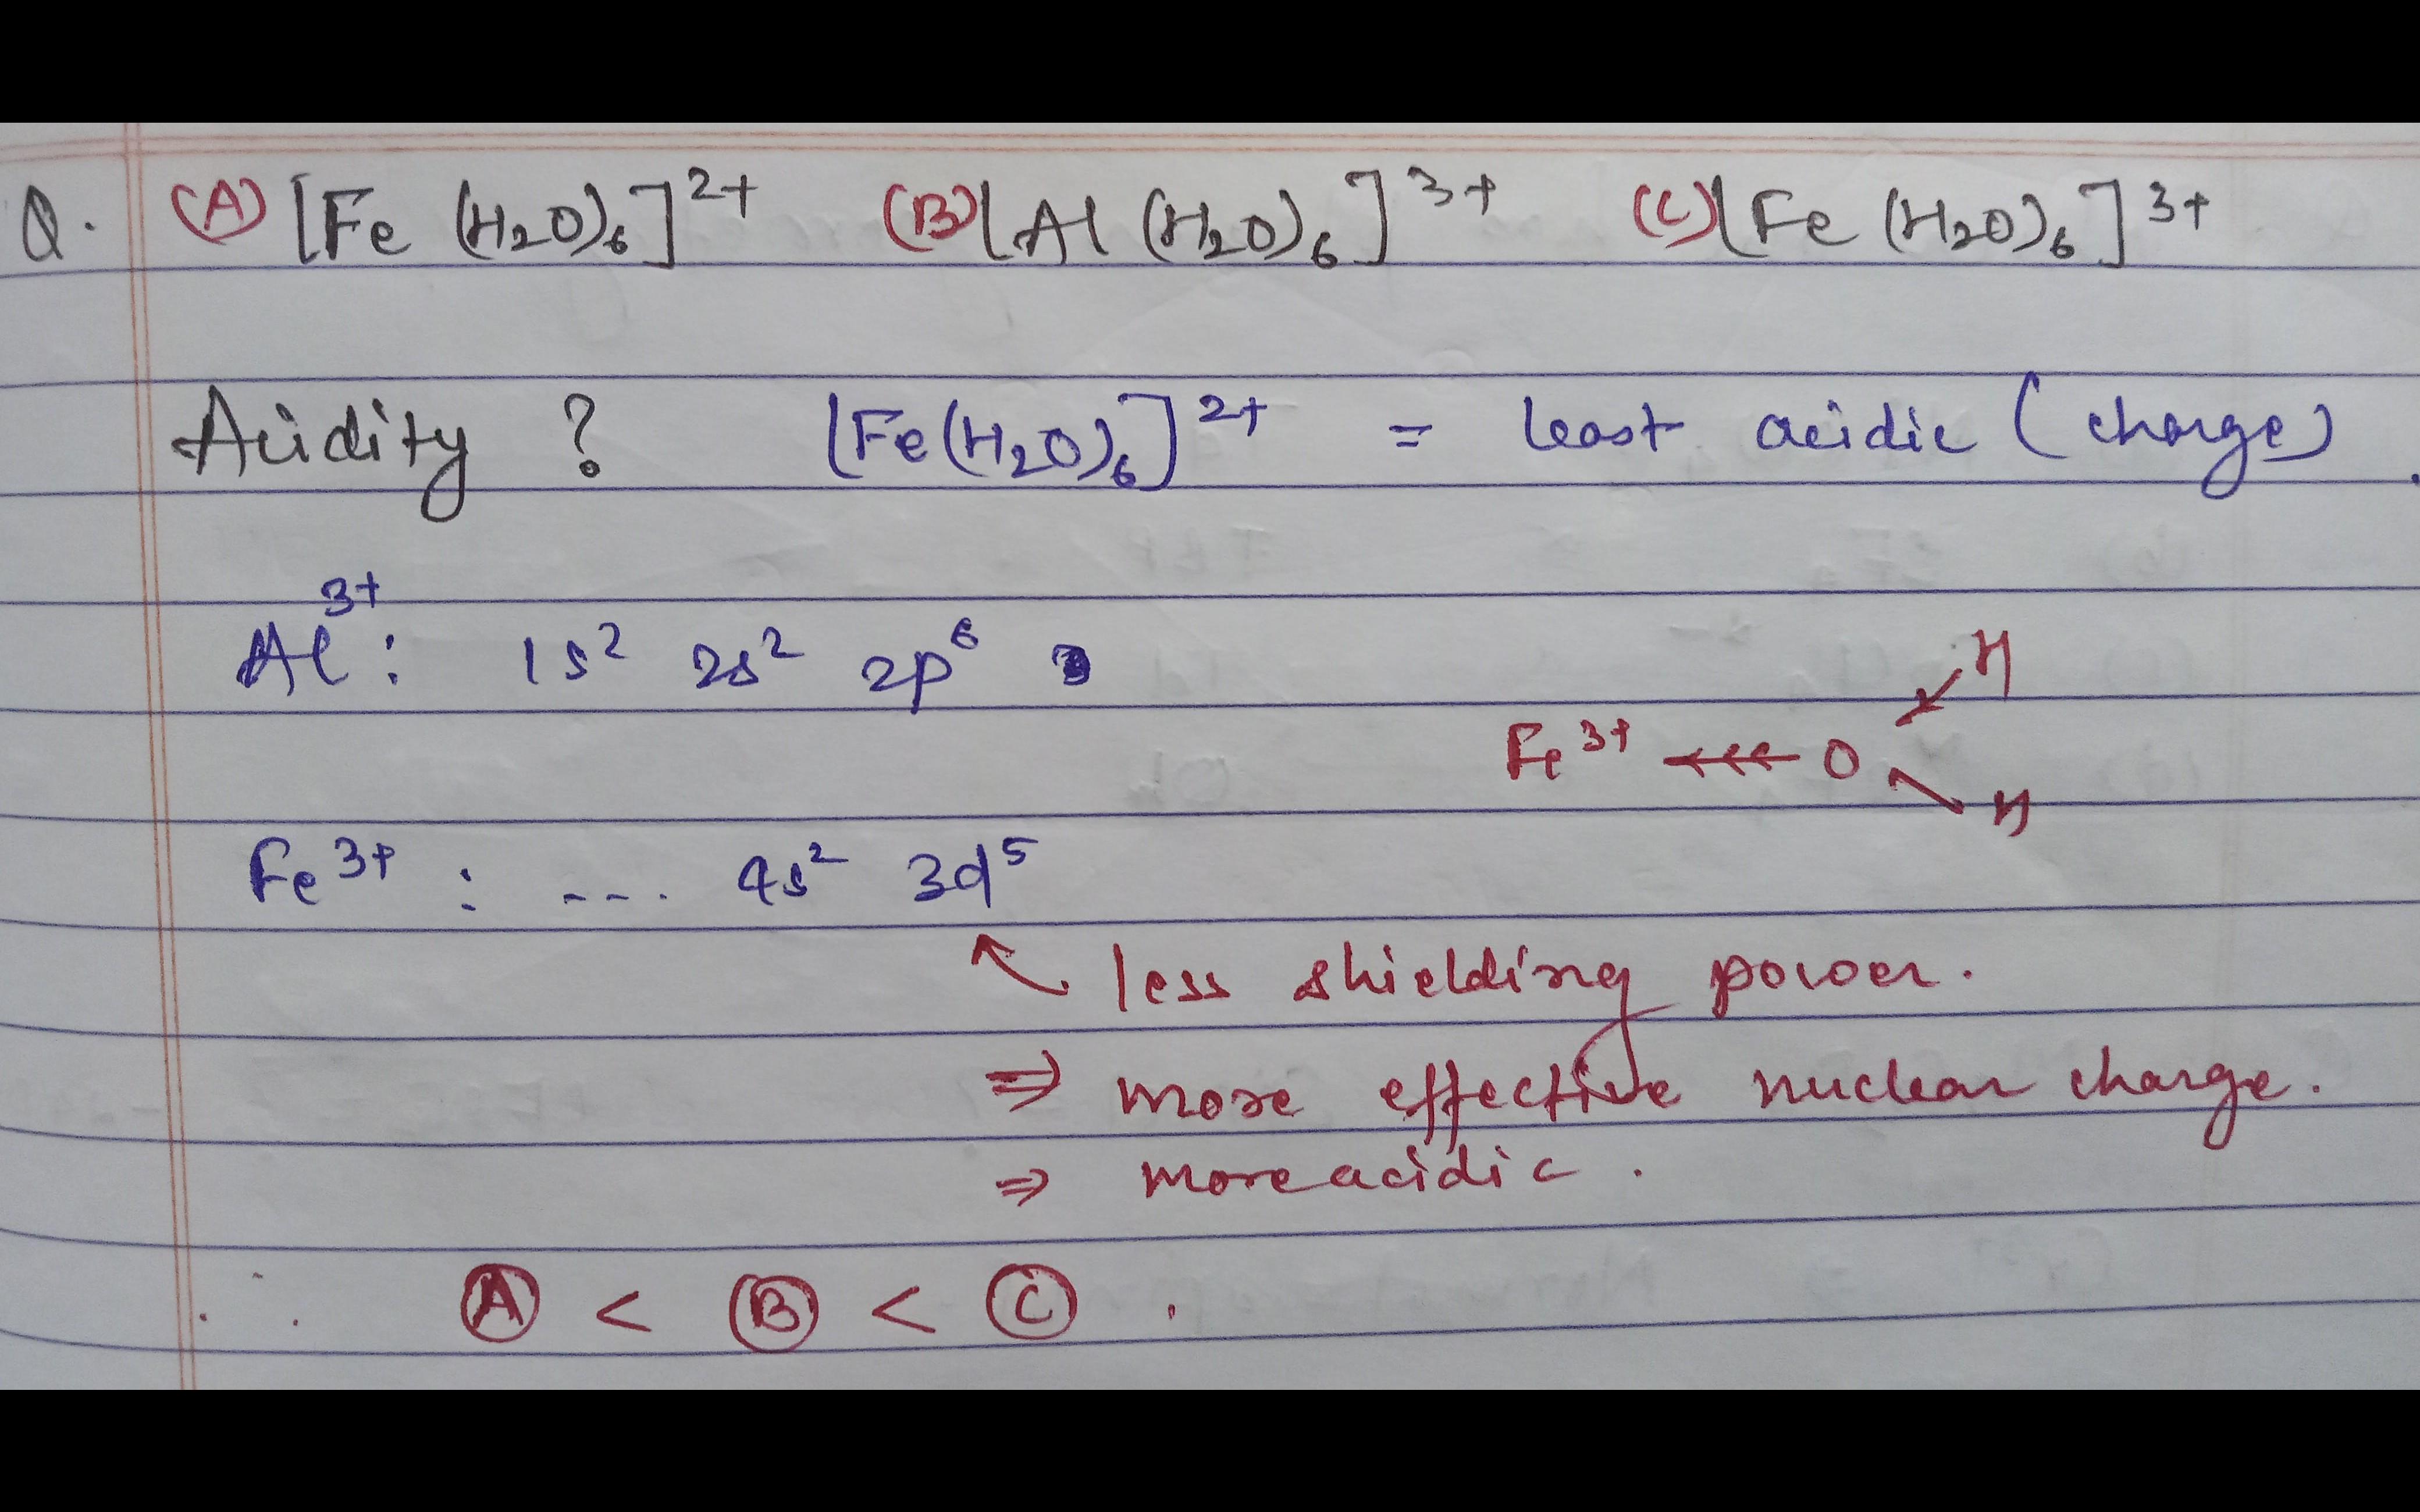 Q. (A) [Fe (H₂O)₆]²⁺ (B) [Al (H₂O)₆]³⁺ (C) [Fe (H₂O)₆]³⁺
Acidity ? [Fe(H₂O)₆]²⁺ = least acidic (charge).
Al³⁺ : 1s² 2s² 2p⁶
H
Fe³⁺ ← O
H
Fe³⁺ : ---. 4s² 3d⁵
↖ less shielding power.
⇒ more effective nuclear charge.
⇒ more acidic.
∴ A < B < C .